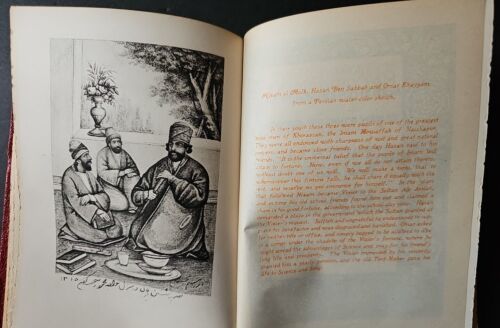 Nizam ul Mulk, Hasan Ben Sabbah and Omar Khayyam,
from a Persian water color sketch.
In their youth these three were pupils of one of the
wise men of Khorassan, the Imam Mowaffak of Naishapur.
They were all endowed with sharpness of wit and great natural
powers and became close friends. One day Hasan said to his
friends, "It is the universal belief that the pupils of Imam will
attain to fortune. Now, even if we all do not attain thereto,
without doubt one of us will. We will make a vow, that to
whomsoever this fortune falls, he shall share it equally with the
rest, and reserve no for himself." In the years
that followed Nizam became Vizier to the Sultan Alp Arslan,
and his old school friends found him out and claimed a
share in his good fortune, according to the school-day vow. Hasan
demanded a place in the government which the Sultan granted at
the Vizier's request. Selfish and ungrateful he endeavored to
his benefactor and was disgraced and banished. Omar asked
for neither title or office, and simply begged to be allowed to live
in a corner under the shadow of the Vizier's fortune, where he
might spread the advantages of Science and pray for his friend's
long life and prosperity. The Vizier impressed by his sincerity
granted him a yearly pension, and the old Tent Maker gave his
life to Science and Song.